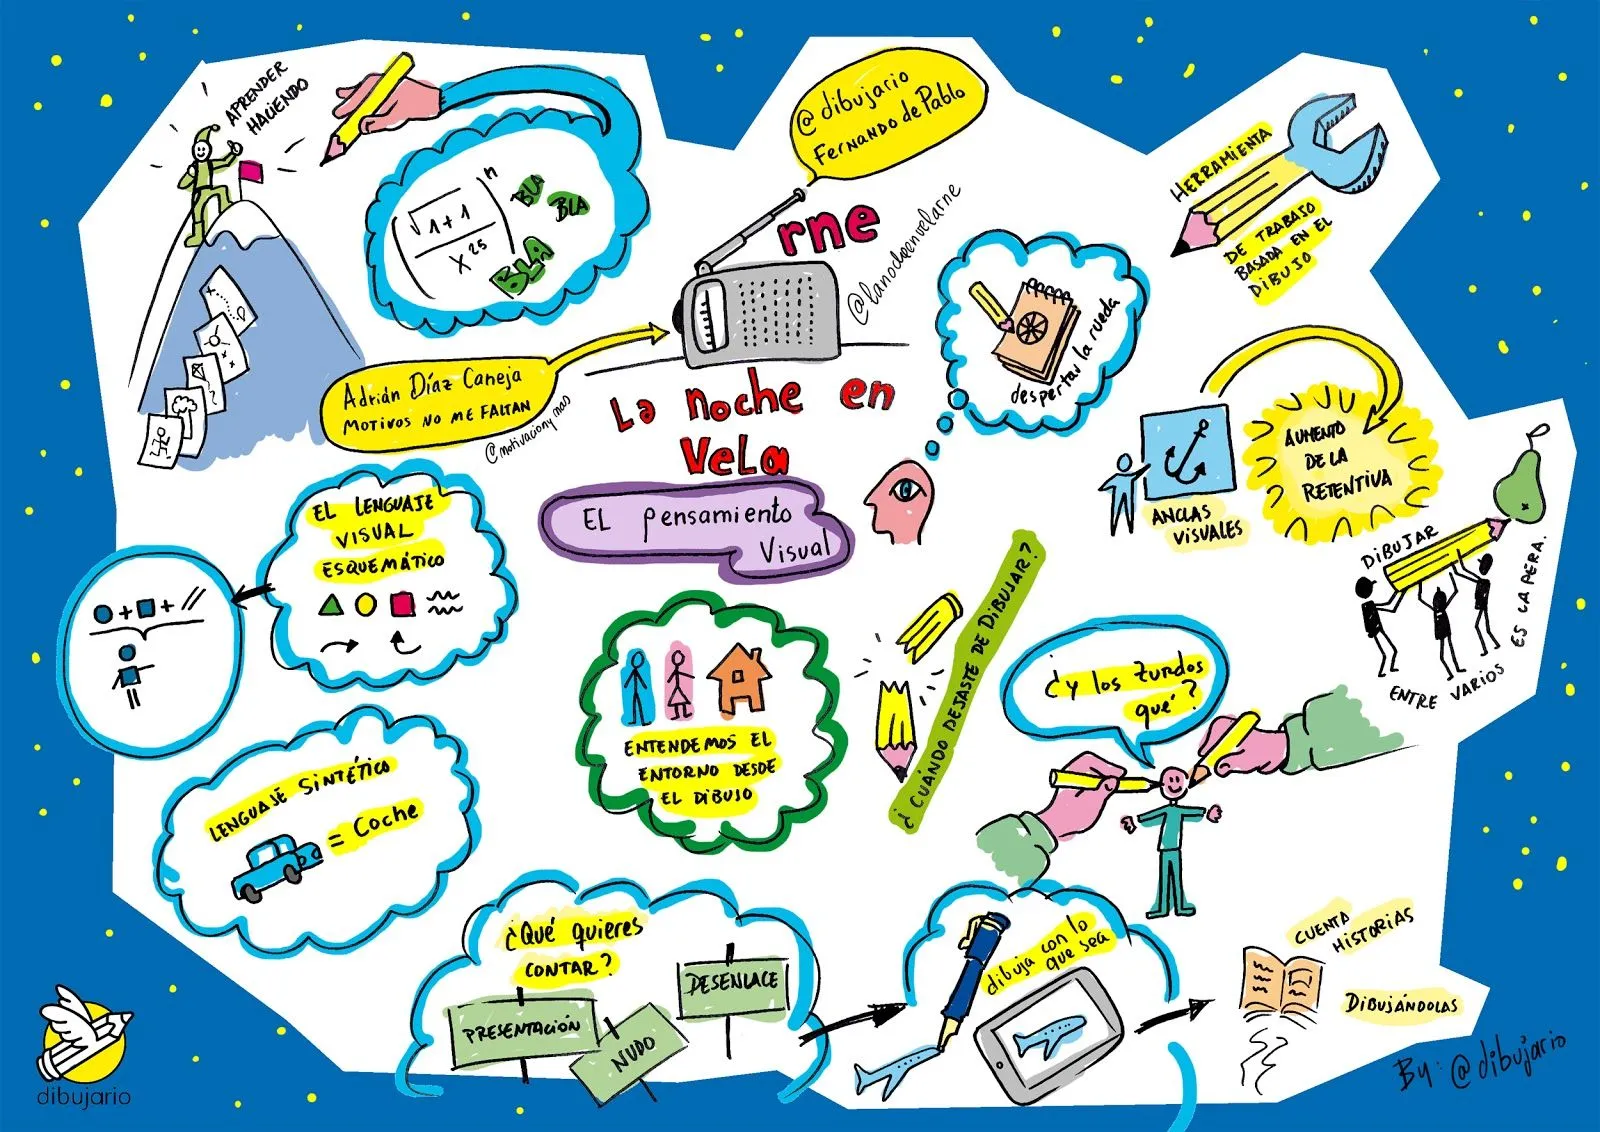 APRENDER
HACIENDO
√1+1
x 25
n
BLA
BLA
BLA
@dibujario
FERNANDO de Pablo
rne
@lanocheenvelarne
Adrián Díaz Caneja
MOTIVOS NO ME FALTAN
@motivacionymas
La noche en
Vela
EL pensamiento
Visual
despertar la rueda
HERRAMIENTA
DE TRABAJO
BASADA EN EL
DIBUJO
ANCLAS
VISUALES
AUMENTO
DE LA
RETENTIVA
DIBUJAR
ENTRE VARIOS
ES LA PERA.
EL LENGUAJE
VISUAL
ESQUEMÁTICO
+ + //
LENGUAJE SINTÉTICO
= Coche
ENTENDEMOS EL
ENTORNO DESDE
EL DIBUJO
¿CUÁNDO DEJASTE DE DIBUJAR?
¿y los zurdos
qué?
¿Qué quieres
CONTAR?
PRESENTACIÓN
NUDO
DESENLACE
dibuja con lo
que sea
CUENTA
HISTORIAS
DIBUJÁNDOLAS
dibujario
By: @dibujario